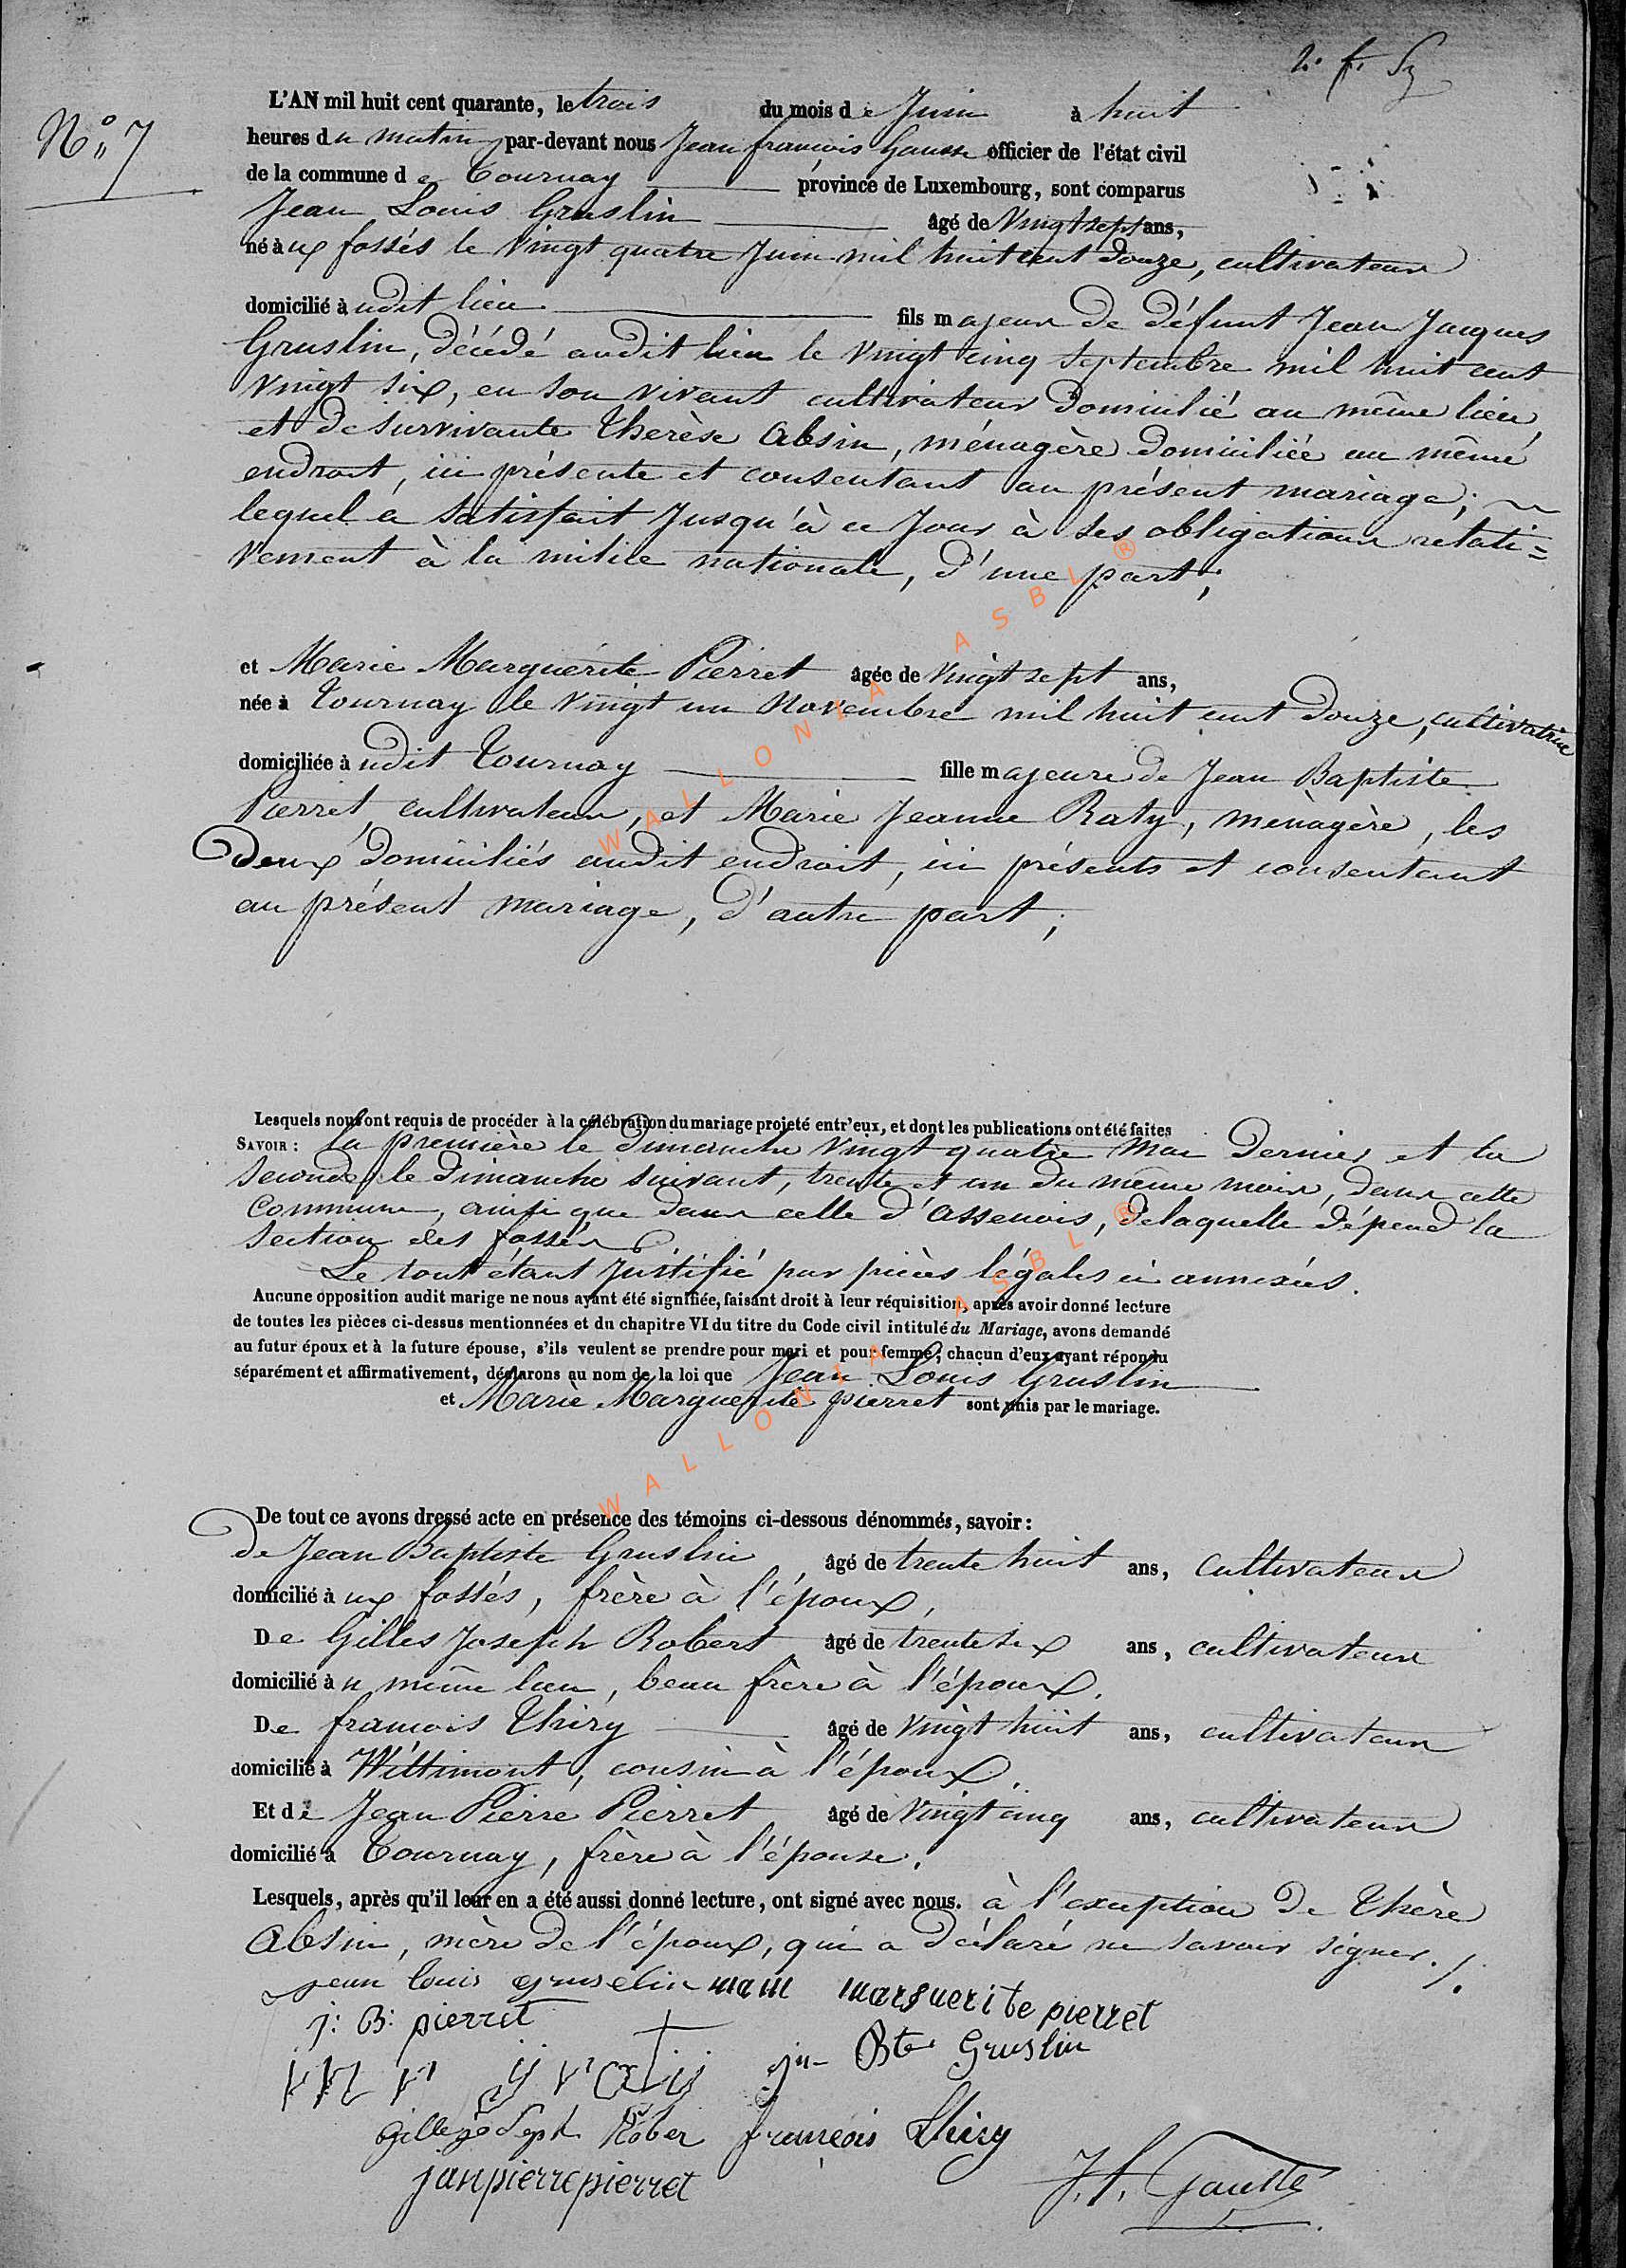 N° 7
L'AN mil huit cent quarante, le trois du mois de Juin à huit
heures du matin, par-devant nous Jean françois Gausse officier de l'état civil
de la commune de Tournay province de Luxembourg, sont comparus
Jean Louis Gruslin âgé de Vingt sept ans,
né à ux fossés le Vingt quatre Juin mil huit cent Douze, cultivateur
domicilié à udit lieu fils majeur de défunt Jean Jacques
Gruslin, décédé audit lieu le Vingt cinq Septembre mil huit cent
Vingt six, en son vivant cultivateur domicilié au même lieu,
et de survivante Therèse Absin, ménagère domiciliée au même
endroit, ici présente et consentant au présent mariage;
lequel a satisfait Jusqu'à ce Jour à ses obligations relati=
vement à la milice nationale, d'une part;
et Marie Marguérite Pierret âgée de Vingt sept ans,
née à Tournay le Vingt un Novembre mil huit cent Douze, cultivatrice
domiciliée à udit Tournay fille majeure de Jean Baptiste
Pierret, cultivateur, et Marie Jeanne Raty, ménagère, les
Deux domiciliés audit endroit, ici présents et consentant
au présent mariage, d'autre part;
Lesquels nous ont requis de procéder à la célébration du mariage projeté entr'eux, et dont les publications ont été faites
SAVOIR: la première le dimanche Vingt quatre Mai dernier et la
seconde, le dimanche suivant, trente et un du même mois, dans cette
commune, ainsi que dans celle d'Assenois, delaquelle dépend la
section des fossés.
Le tout étant Justifié par pièces légales ci annexées.
Aucune opposition audit marige ne nous ayant été signifiée, faisant droit à leur réquisition, après avoir donné lecture
de toutes les pièces ci-dessus mentionnées et du chapitre VI du titre du Code civil intitulé du Mariage, avons demandé
au futur époux et à la future épouse, s'ils veulent se prendre pour mari et pour femme; chacun d'eux ayant répondu
séparément et affirmativement, déclarons au nom de la loi que Jean Louis Gruslin
et Marie Marguerite pierret sont unis par le mariage.
De tout ce avons dressé acte en présence des témoins ci-dessous dénommés, savoir:
De Jean Baptiste Gruslin âgé de trente huit ans, cultivateur
domicilié à ux fossés, frère à l'époux,
De Gilles Joseph Robert âgé de trente six ans, cultivateur
domicilié à u même lieu, beau frère à l'époux.
De françois Thiry âgé de Vingt huit ans, cultivateur
domicilié à Wittimont, cousin à l'époux.
Et de Jean Pierre Pierret âgé de Vingt cinq ans, cultivateur
domicilié à Tournay, frère à l'épouse.
Lesquels, après qu'il leur en a été aussi donné lecture, ont signé avec nous. à l'exception de Thère
Absin, mère de l'époux, qui a déclaré ne savoir signer./.
jean louis gruselin marguerite pierret
j: B: pierret
jn Bte Gruslin
gille joseph Rober françois thiry
jan pierre pierret J.f. Gausse
WALLONIA ASBL ®
WALLONIA ASBL ®